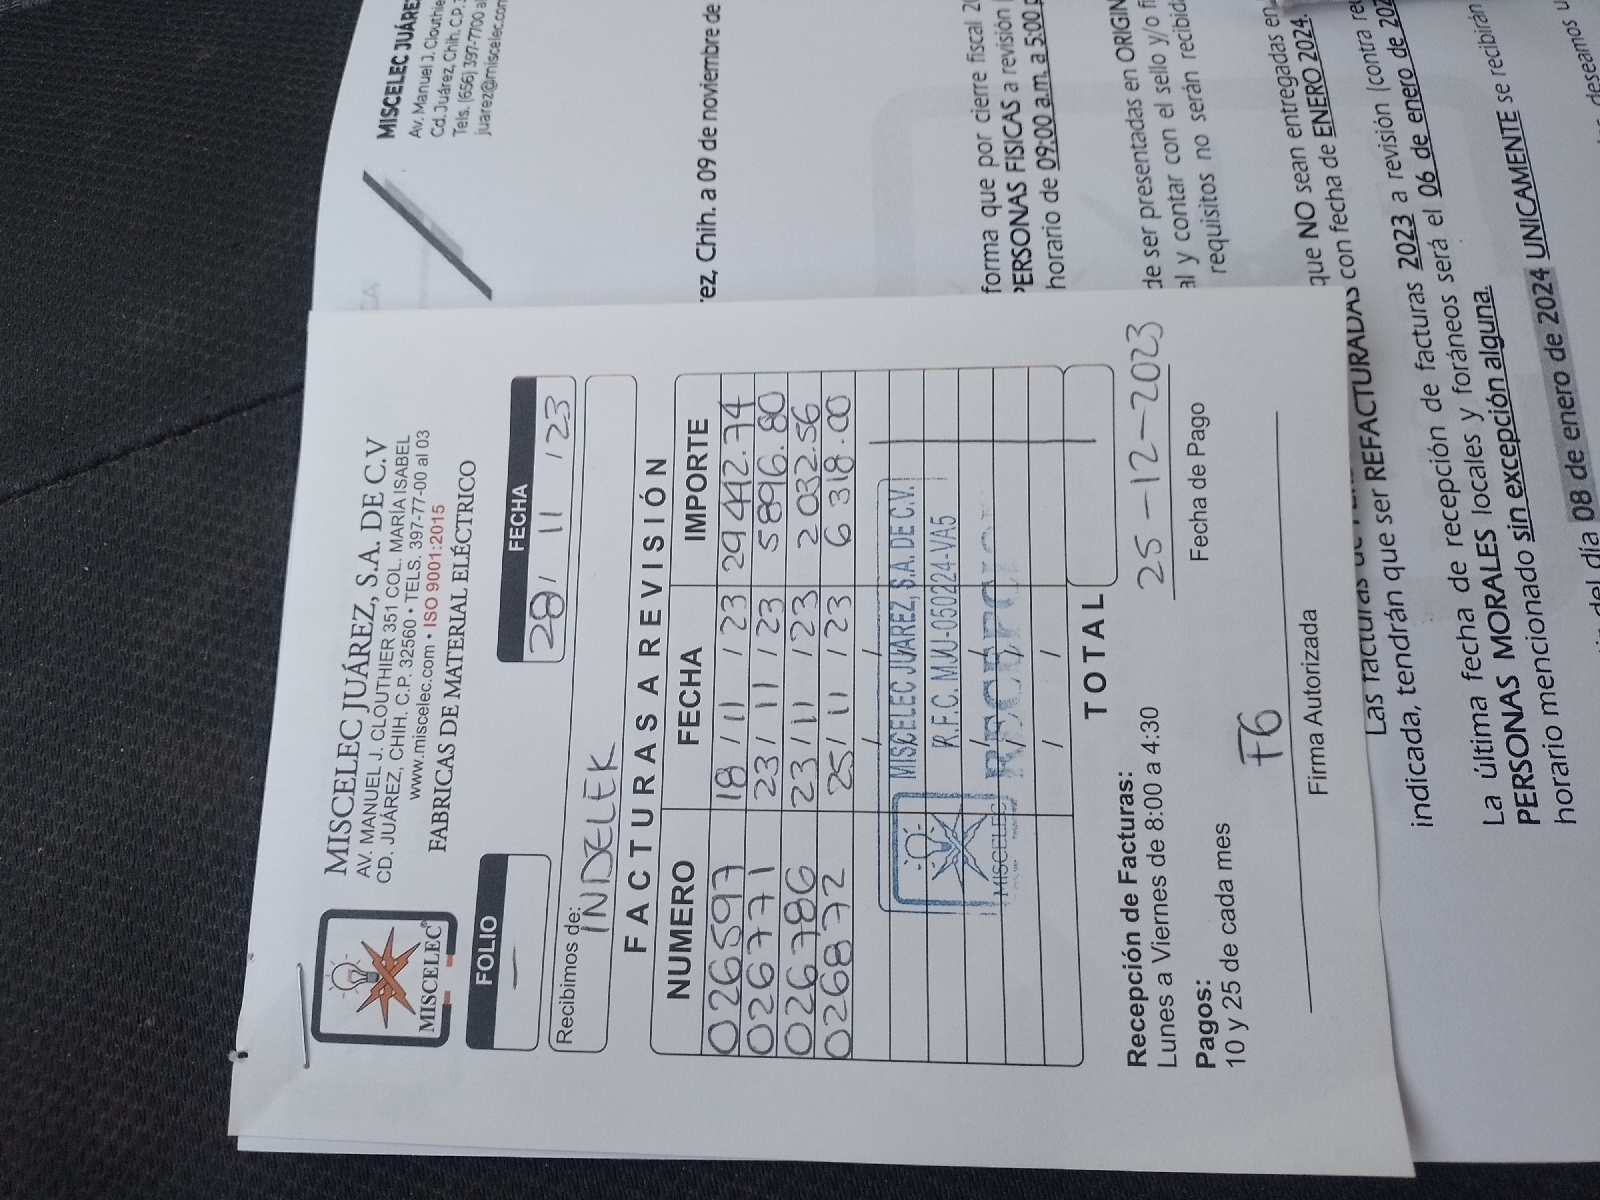 MISCELEC JUÁREZ, S.A. DE C.V
AV. MANUEL J. CLOUTHIER 351 COL. MARÍA ISABEL
CD. JUÁREZ, CHIH. C.P. 32560 • TELS. 397-77-00 al 03
www.miscelec.com • ISO 9001:2015
FABRICAS DE MATERIAL ELÉCTRICO
MISCELEC
FOLIO
—
FECHA
28 / 11 / 23
Recibimos de:
INDELEK
FACTURAS A REVISIÓN
NUMERO FECHA IMPORTE
026597 18 / 11 / 23 29442.74
026771 23 / 11 / 23 5896.80
026786 23 / 11 / 23 2032.56
026872 25 / 11 / 23 6318.00
MISCELEC JUAREZ, S.A. DE C.V.
R.F.C. MJU-050224-VA5
MISCELEC
TOTAL
Recepción de Facturas:
Lunes a Viernes de 8:00 a 4:30
Pagos:
10 y 25 de cada mes
25-12-2023
Fecha de Pago
F6
Firma Autorizada
MISCELEC JUÁREZ
Av. Manuel J. Clouthie
Cd. Juárez, Chih. C.P.
Tels. (656) 397-7700 a
juarez@miscelec.com
ez, Chih. a 09 de noviembre de
forma que por cierre fiscal 20
PERSONAS FISICAS a revisión
horario de 09:00 a.m. a 5:00
de ser presentadas en ORIGIN
al y contar con el sello y/o fi
requisitos no serán recibida
que NO sean entregadas en
con fecha de ENERO 2024.
Las facturas de
indicada, tendrán que ser REFACTURADAS
a revisión (contra re
La última fecha de recepción de facturas 2023
PERSONAS MORALES locales y foráneos será el 06 de enero de 202
horario mencionado sin excepción alguna.
del día 08 de enero de 2024 UNICAMENTE se recibirán
deseamos u